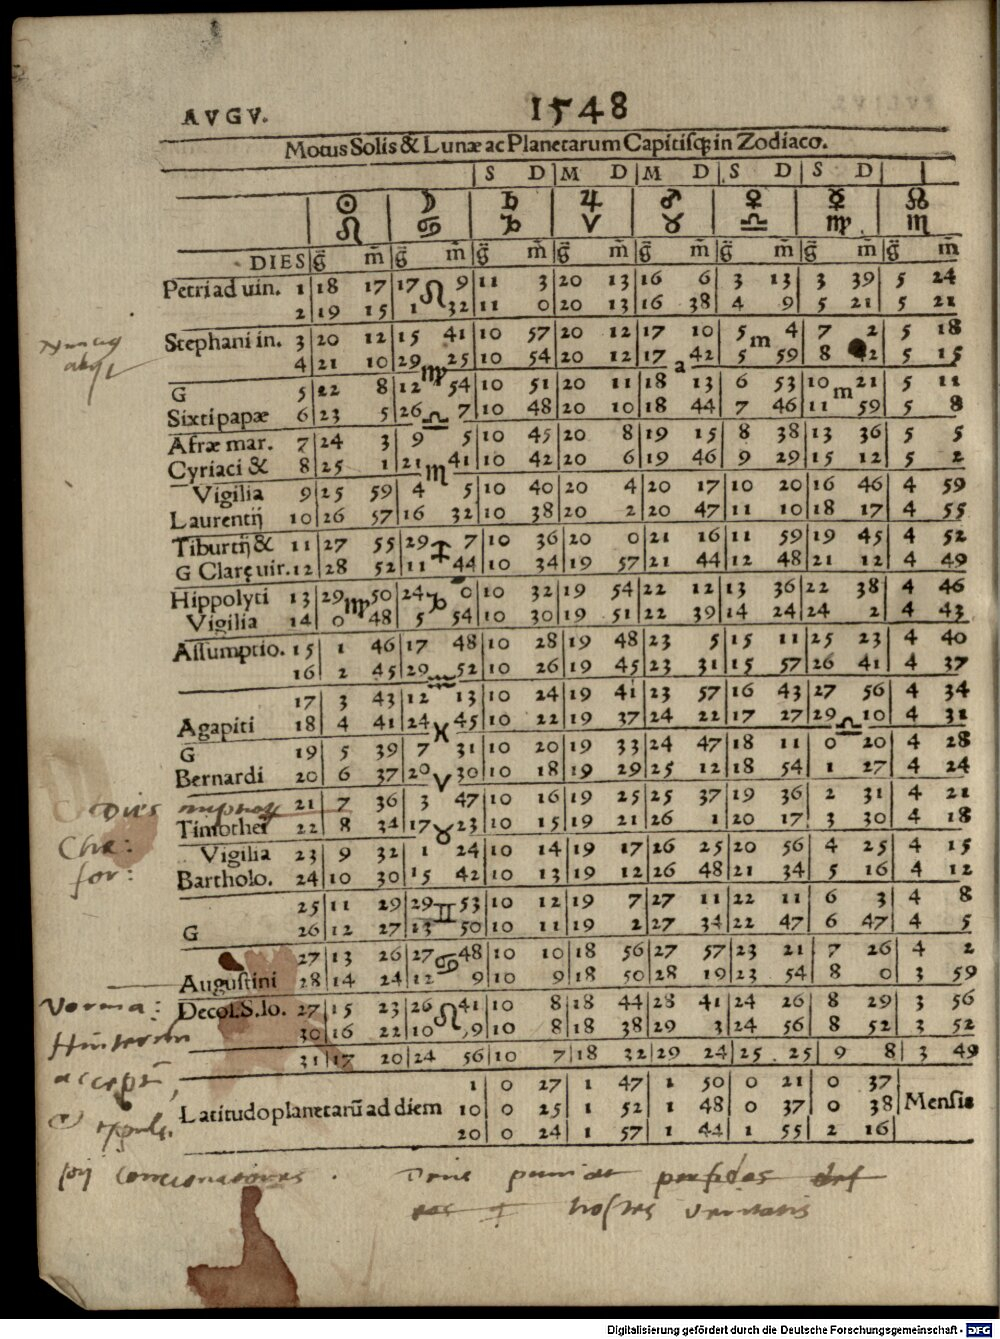 AVGV. 1548
Motus Solis & Lunæ ac Planetarum Capitisq; in Zodiaco.
S D M D M D S D S D
☉ ☽ ♄ ♃ ♂ ♀ ☿ ☊
♌ ♋ ♑ ♈ ♉ ♎ ♍ ♏
DIES g̃ m̃ g̃ m̃ g̃ m̃ g̃ m̃ g̃ m̃ g̃ m̃ g̃ m̃ g̃ m̃
Petri ad uin. 1 18 17 17 ♌ 9 11 3 20 13 16 6 3 13 3 39 5 24
2 19 15 1 32 11 0 20 13 16 38 4 9 5 21 5 21
Stephani in. 3 20 12 15 41 10 57 20 12 17 10 5 m 4 7 2 5 18
4 21 10 29 ♍ 25 10 54 20 12 17 a 42 5 59 8 42 5 15
G 5 22 8 12 54 10 51 20 11 18 13 6 53 10 m 21 5 11
Sixti papæ 6 23 5 26 ♎ 7 10 48 20 10 18 44 7 46 11 59 5 8
Afræ mar. 7 24 3 9 5 10 45 20 8 19 15 8 38 13 36 5 5
Cyriaci & 8 25 1 21 ♏ 41 10 42 20 6 19 46 9 29 15 12 5 2
Vigilia 9 25 59 4 5 10 40 20 4 20 17 10 20 16 46 4 59
Laurentij 10 26 57 16 32 10 38 20 2 20 47 11 10 18 17 4 55
Tiburtij & 11 27 55 29 ♐ 7 10 36 20 0 21 16 11 59 19 45 4 52
G Claręuir. 12 28 52 11 44 10 34 19 57 21 44 12 48 21 12 4 49
Hippolyti 13 29 ♍ 50 24 ♑ 0 10 32 19 54 22 12 13 36 22 38 4 46
Vigilia 14 0 48 5 54 10 30 19 51 22 39 14 24 24 2 4 43
Assumptio. 15 1 46 17 48 10 28 19 48 23 5 15 11 25 23 4 40
16 2 45 29 ♒ 52 10 26 19 45 23 31 15 57 26 41 4 37
17 3 43 12 13 10 24 19 41 23 57 16 43 27 56 4 34
Agapiti 18 4 41 24 ♓ 45 10 22 19 37 24 22 17 27 29 ♎ 10 4 31
G 19 5 39 7 31 10 20 19 33 24 47 18 11 0 20 4 28
Bernardi 20 6 37 20 ♈ 30 10 18 19 29 25 12 18 54 1 27 4 24
21 7 36 3 47 10 16 19 25 25 37 19 36 2 31 4 21
Timothei 22 8 34 17 ♉ 23 10 15 19 21 26 1 20 17 3 30 4 18
Vigilia 23 9 32 1 24 10 14 19 17 26 25 20 56 4 25 4 15
Bartholo. 24 10 30 15 42 10 13 19 12 26 48 21 34 5 16 4 12
25 11 29 29 ♊ 53 10 12 19 7 27 11 22 11 6 3 4 8
G 26 12 27 13 50 10 11 19 2 27 34 22 47 6 47 4 5
27 13 26 27 ♋ 48 10 10 18 56 27 57 23 21 7 26 4 2
Augustini 28 14 24 12 9 10 9 18 50 28 19 23 54 8 0 3 59
Decol. S. Io. 27 15 23 26 ♌ 41 10 8 18 44 28 41 24 26 8 29 3 56
30 16 22 10 9 10 8 18 38 29 3 24 56 8 52 3 52
31 17 20 24 56 10 7 18 32 29 24 25 25 9 8 3 49
1 0 27 1 47 1 50 0 21 0 37
Latitudo planetarũ ad diem 10 0 25 1 52 1 48 0 37 0 38 Mensis
20 0 24 1 57 1 44 1 55 2 16
Dies
hostes veritatis
Digitalisierung gefördert durch die Deutsche Forschungsgemeinschaft - DFG